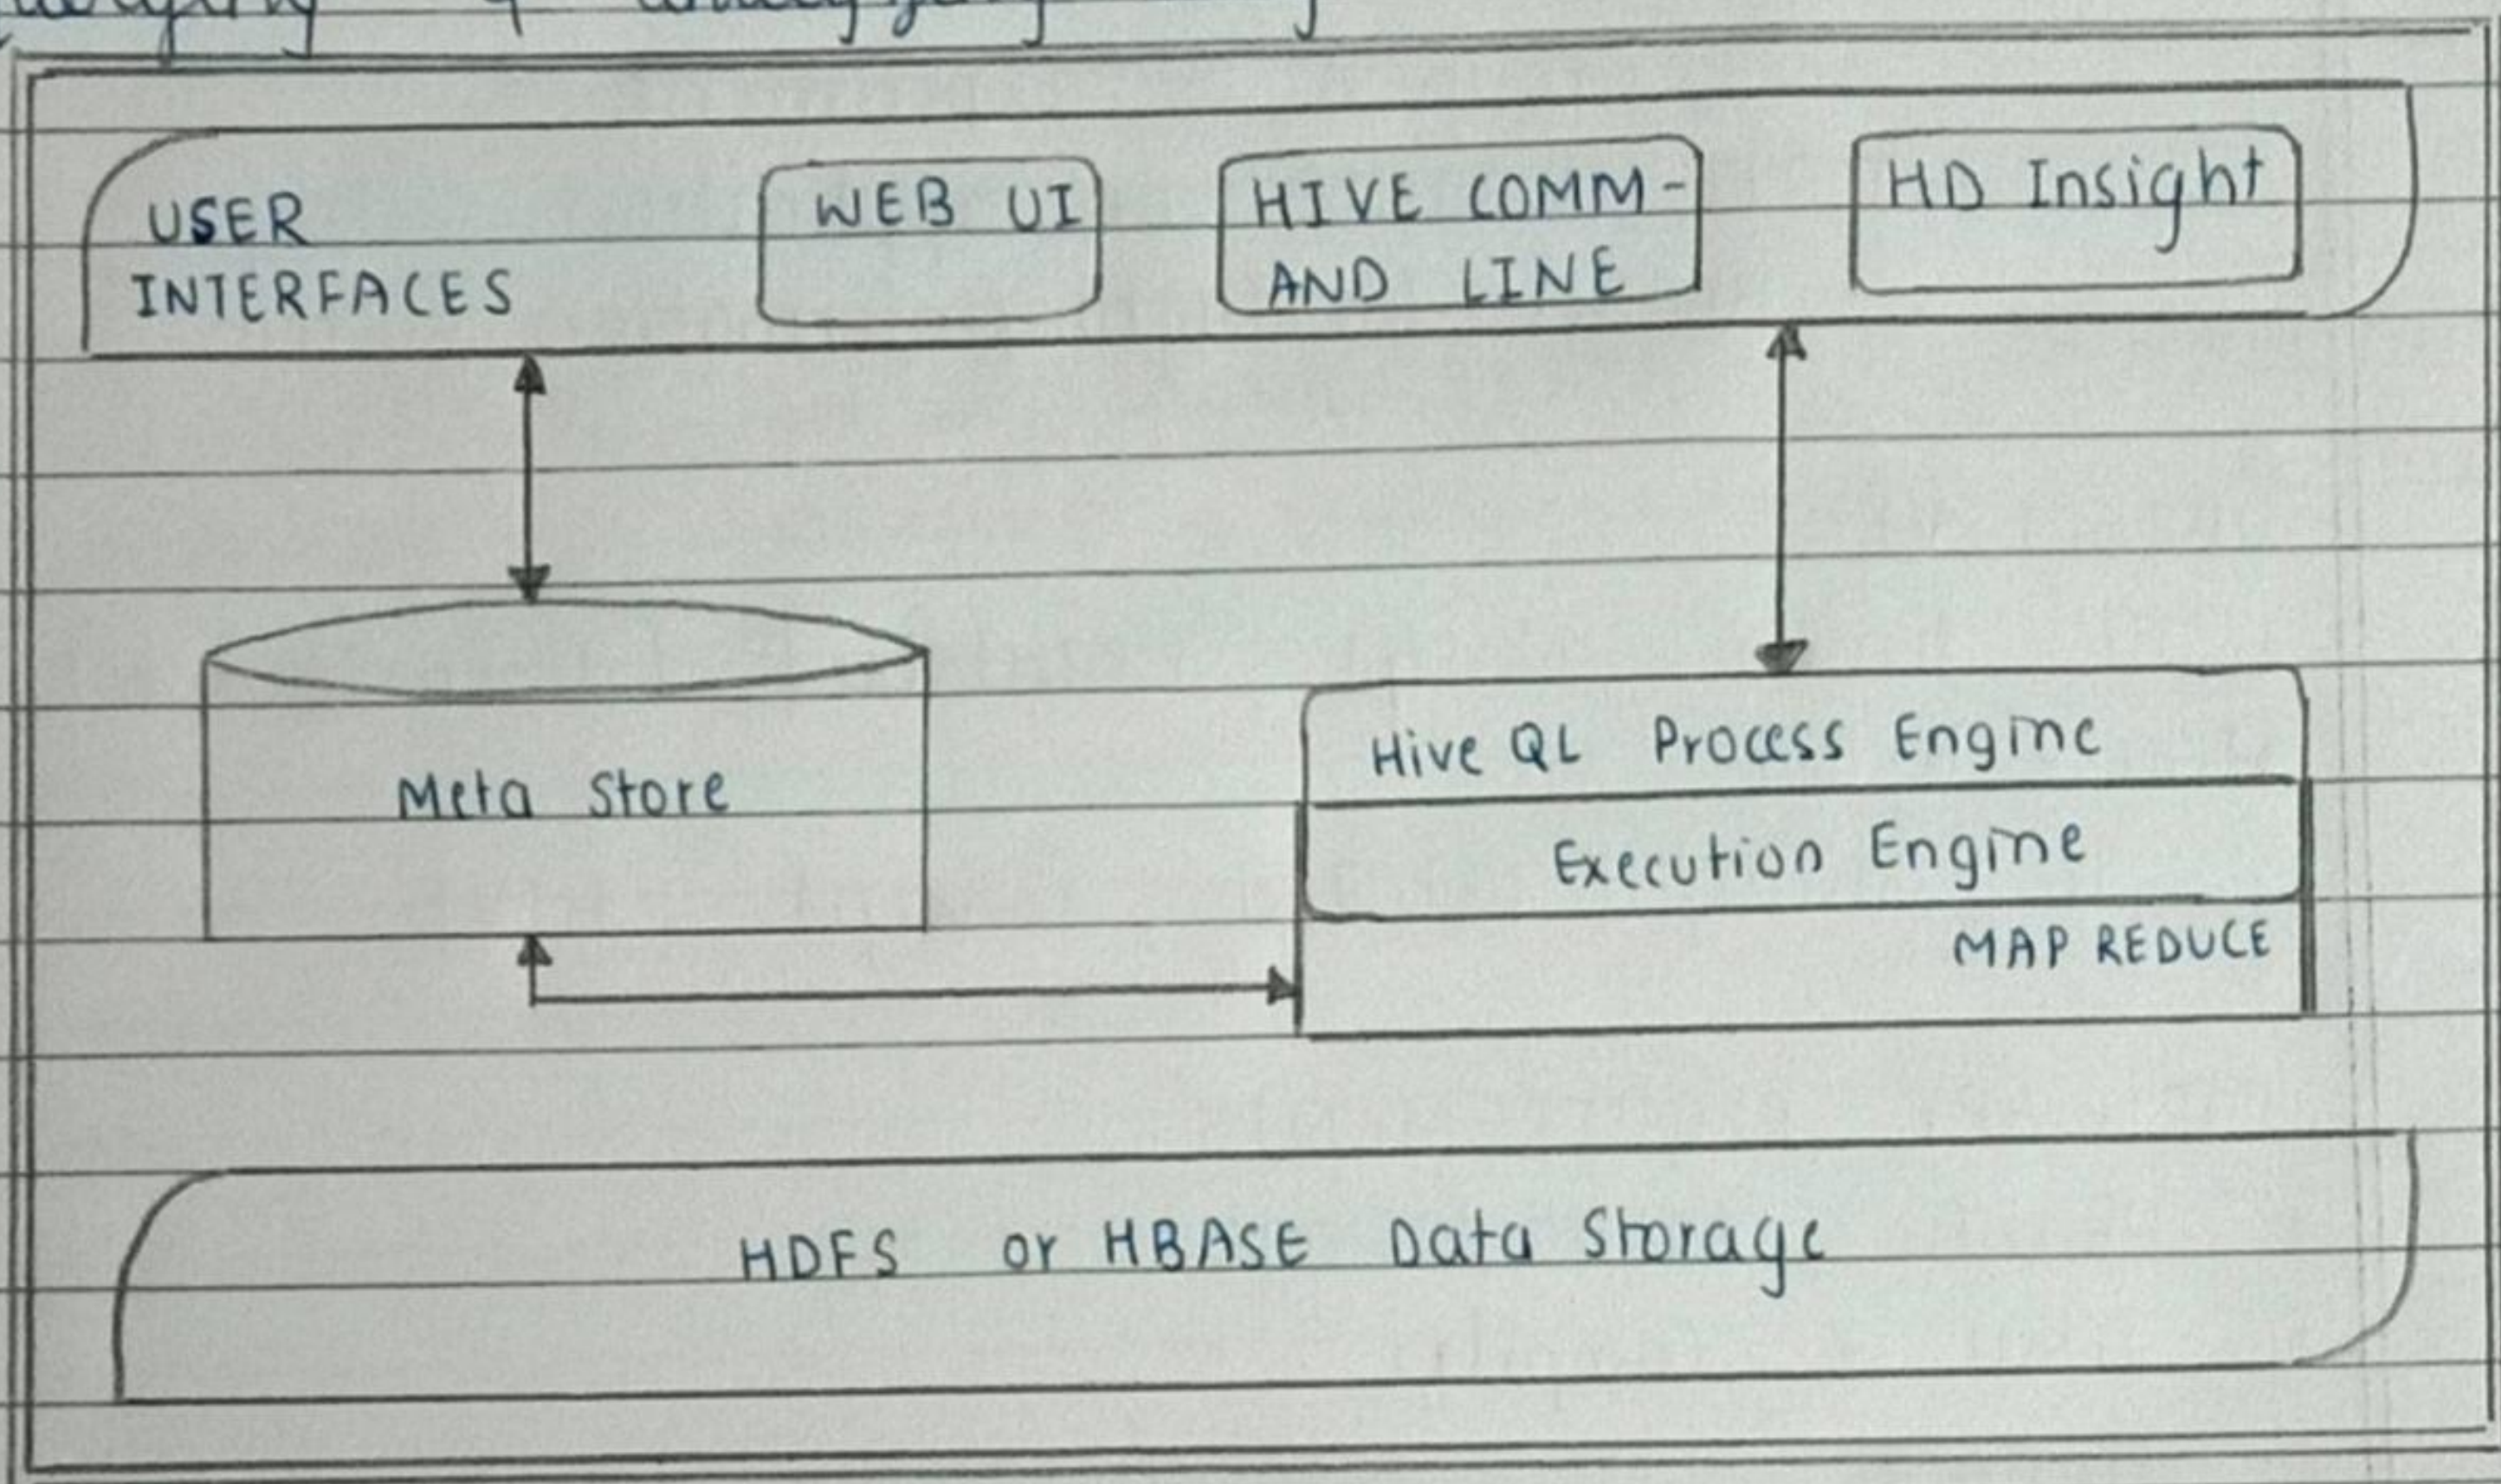 USER
INTERFACES
WEB UI
HIVE COMM-
AND LINE
HD Insight
Meta Store
Hive QL Process Engine
Execution Engine
MAP REDUCE
HDFS or HBASE Data Storage